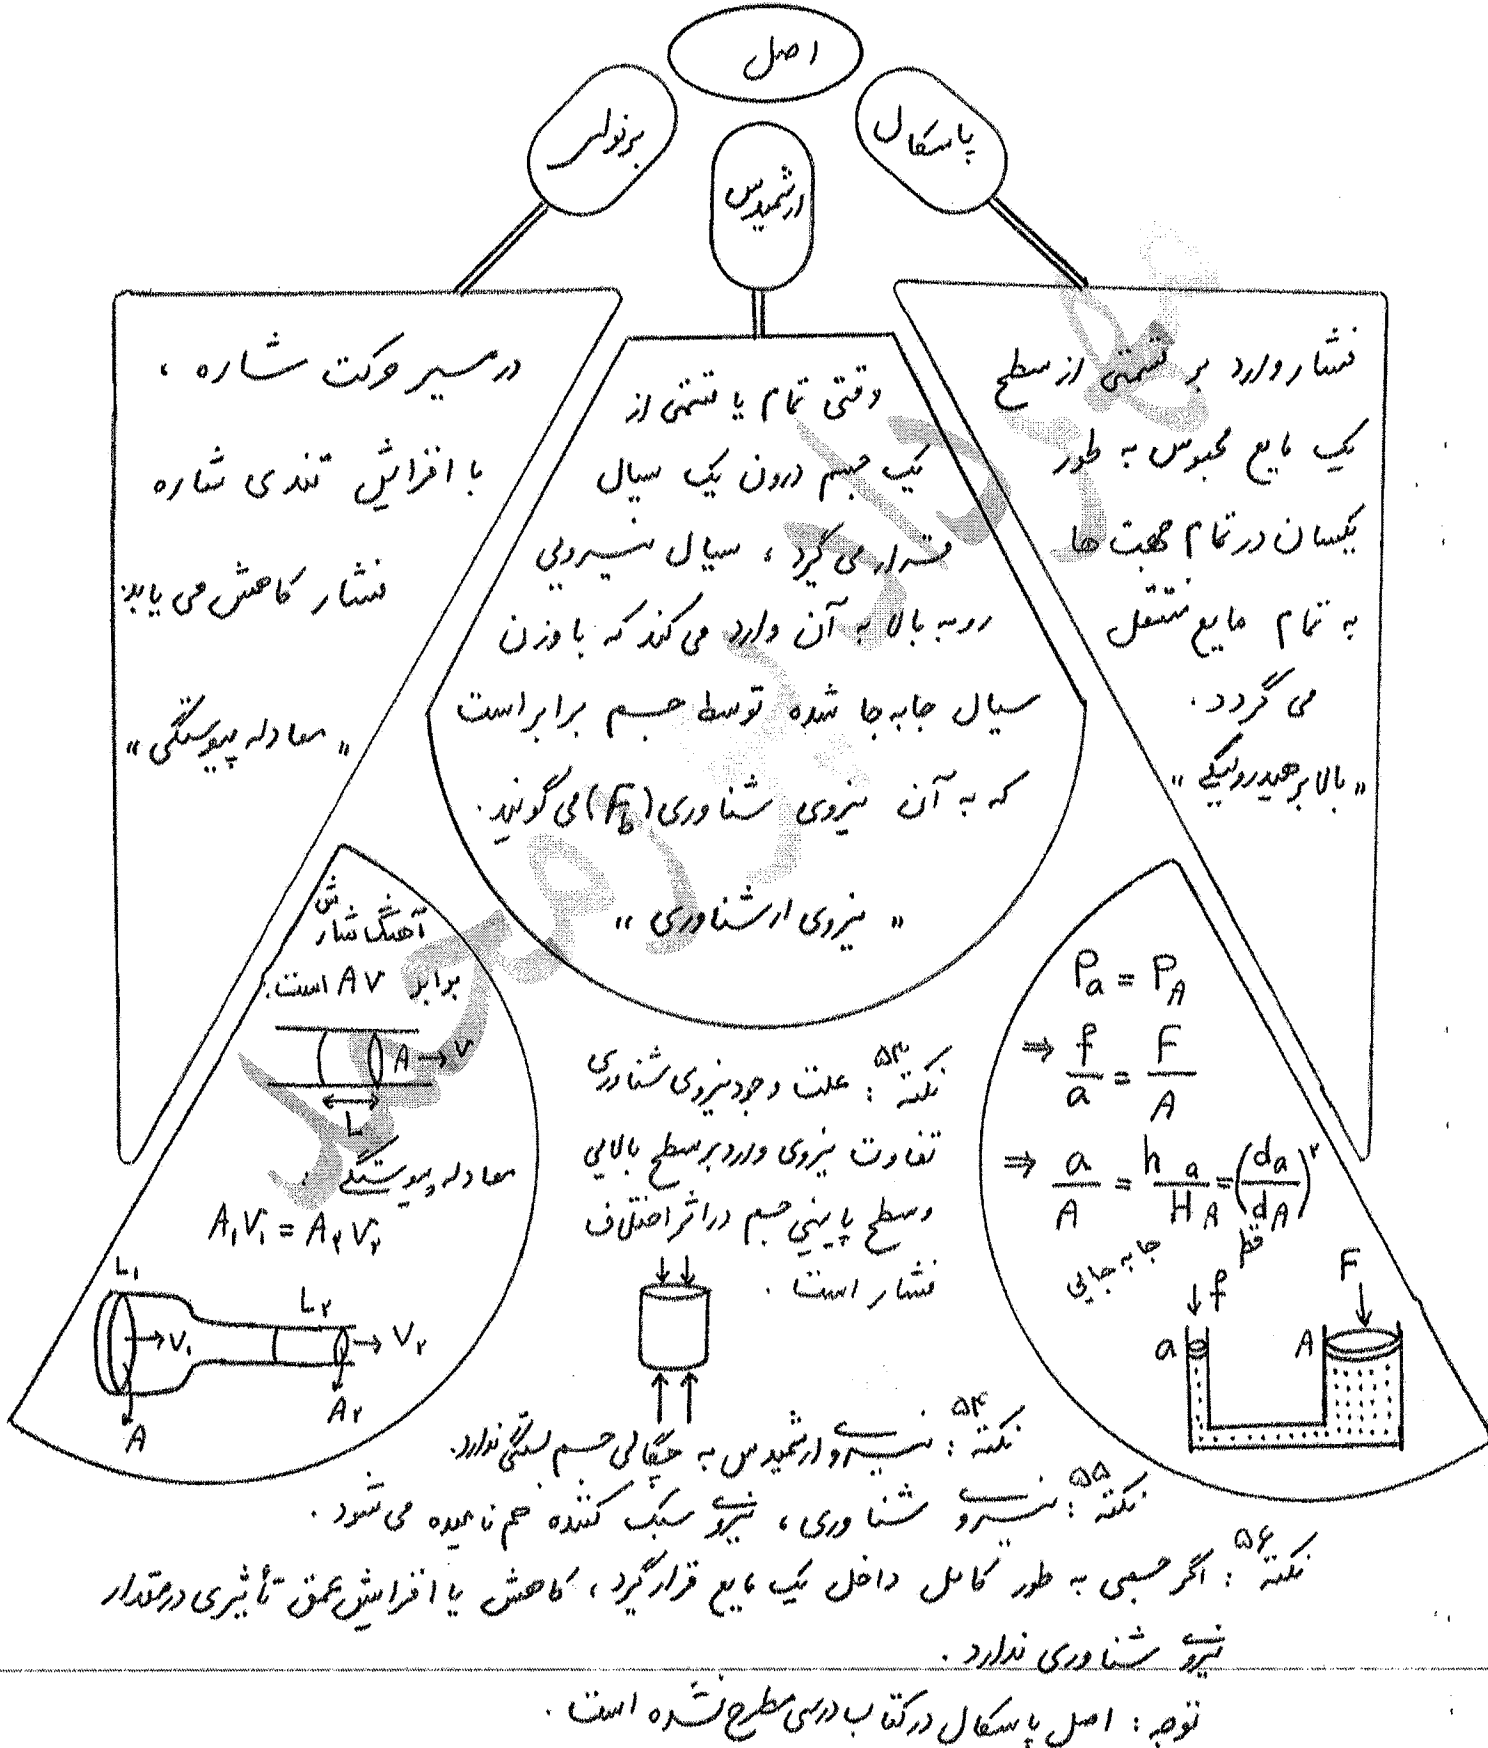 اصل
پاسکال
ارشمیدس
برنولی
فشار وارد بر قسمتی از سطح
یک مایع محبوس به طور
یکسان در تمام جهت ها
به تمام مایع منتقل
می گردد.
«بالابر هیدرولیکی»
وقتی تمام یا قسمتی از
یک جسم درون یک سیال
قرار می گیرد، سیال نیرویی
رو به بالا به آن وارد می کند که با وزن
سیال جابه جا شده توسط جسم برابر است
که به آن نیروی شناوری (F_b) می گویند.
«نیروی ارشناوری»
در مسیر حرکت شاره،
با افزایش تندی شاره
فشار کاهش می یابد.
«معادله پیوستگی»
P_a = P_A
⇒ f/a = F/A
⇒ a/A = h_a/H_A = (d_a/d_A)^۲
جابه جایی
قطر
f
F
a
A
نکته ۵۳: علت وجود نیروی شناوری
تفاوت نیروی وارد بر سطح بالایی
و سطح پایینی جسم در اثر اختلاف
فشار است.
ش
آهنگ شار
برابر Av است.
A → v
L
معادله پیوستگی:
A₁V₁ = A₂V₂
L₁
L₂
V₁
V₂
A
A₂
نکته ۵۴: نیروی ارشمیدس به چگالی جسم بستگی ندارد.
نکته ۵۵: نیروی شناوری، نیروی سبک کننده هم نامیده می شود.
نکته ۵۶: اگر جسمی به طور کامل داخل یک مایع قرار گیرد، کاهش یا افزایش عمق تأثیری در مقدار
نیروی شناوری ندارد.
توجه: اصل پاسکال در کتاب درسی مطرح نشده است.